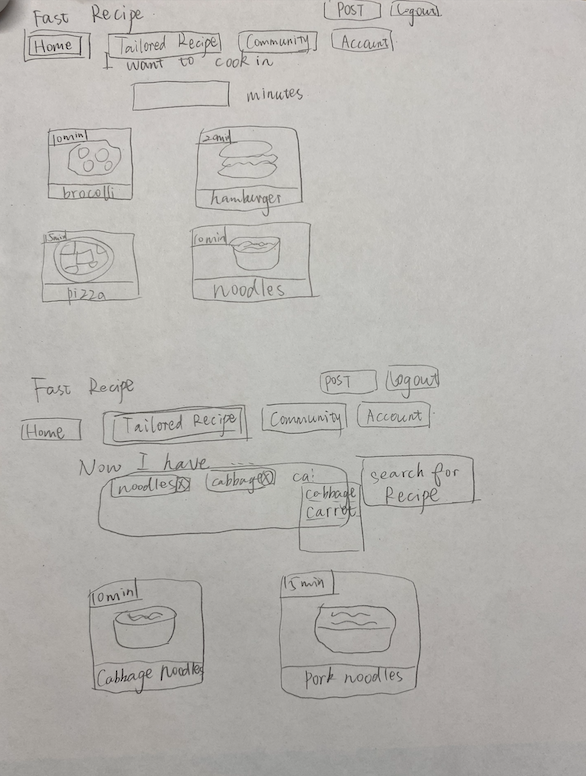 Fast Recipe POST Logout
Home Tailored Recipe Community Account
I want to cook in
minutes
10min 20min
brocolli hamburger
15min 10min
pizza noodles
Fast Recipe POST Logout
Home Tailored Recipe Community Account
Now I have.....
noodles x cabbage x ca: search for
cabbage Recipe
carrot
10min 15min
Cabbage noodles Pork noodles